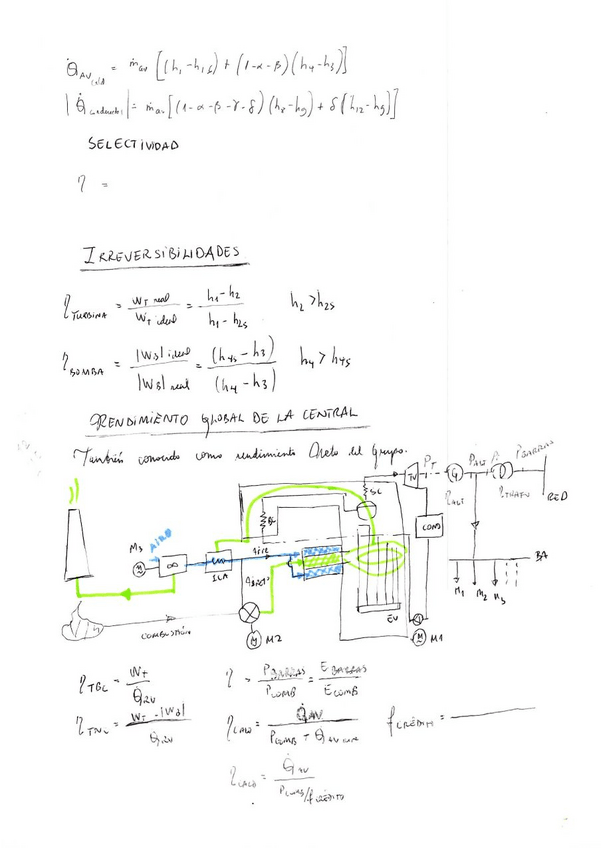 Q̇AV = ṁav [(h1 - h18) + (1-α-β)(h4-h3)]
|Q̇ | = ṁav[(1-α-β-γ-δ)(h8-h9) + δ(h12-h9)]
SELECTIVIDAD
η =
IRREVERSIBILIDADES
η TURBINA = WT real / WT ideal = h1-h2 / h1-h2s h2 > h2s
η BOMBA = |WB| ideal / |WB| real = (h4s - h3) / (h4 - h3) h4 > h4s
RENDIMIENTO GLOBAL DE LA CENTRAL
También conocido como rendimiento neto del Grupo.
TV PT G PALT PBARRAS
ηALT ηTRAFO RED
SC
COND
M3 AIRE
∞
aire
BA
M1 M2 M3
EV
COMBUSTIÓN
M M2
M M1
ηTBC = WT / Q̇AV η = PBARRAS / PCOMB = EBARRAS / ECOMB
ηTNC = WT - |WB| / Q̇AV ηCALD = Q̇AV / PCOMB + Q̇ fCRÉDITO =
ηCALD = Q̇AV / PCOMB/fCRÉDITO